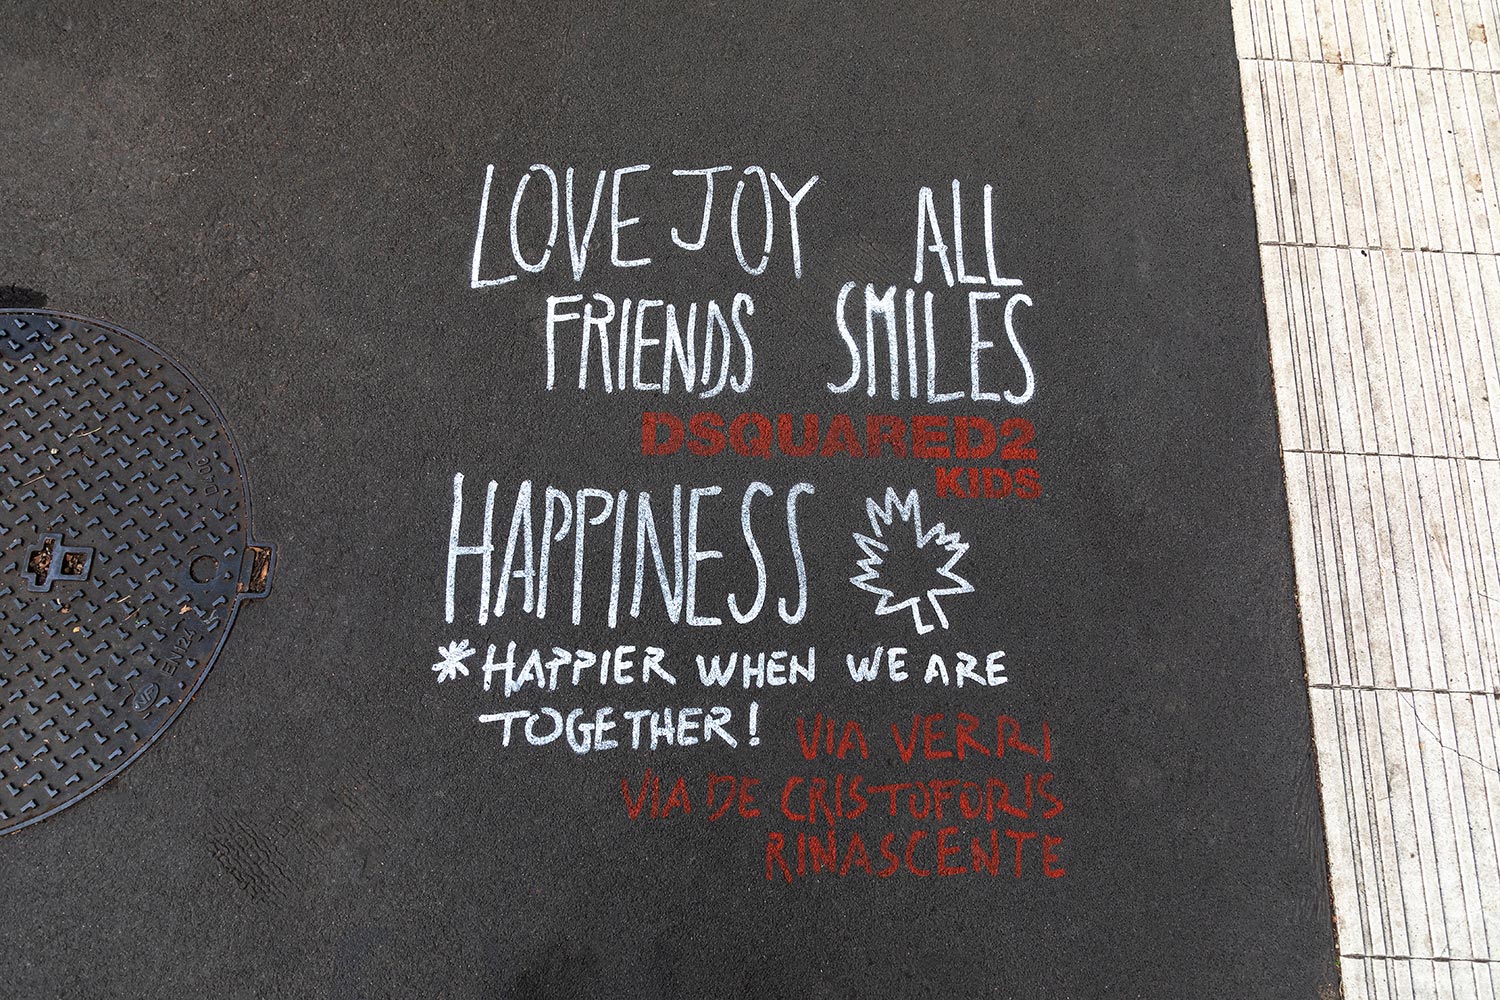 LOVE JOY ALL
FRIENDS SMILES
DSQUARED2
KIDS
HAPPINESS
*HAPPIER WHEN WE ARE
TOGETHER!
VIA VERRI
VIA DE CRISTOFORIS
RINASCENTE
D400
EN124